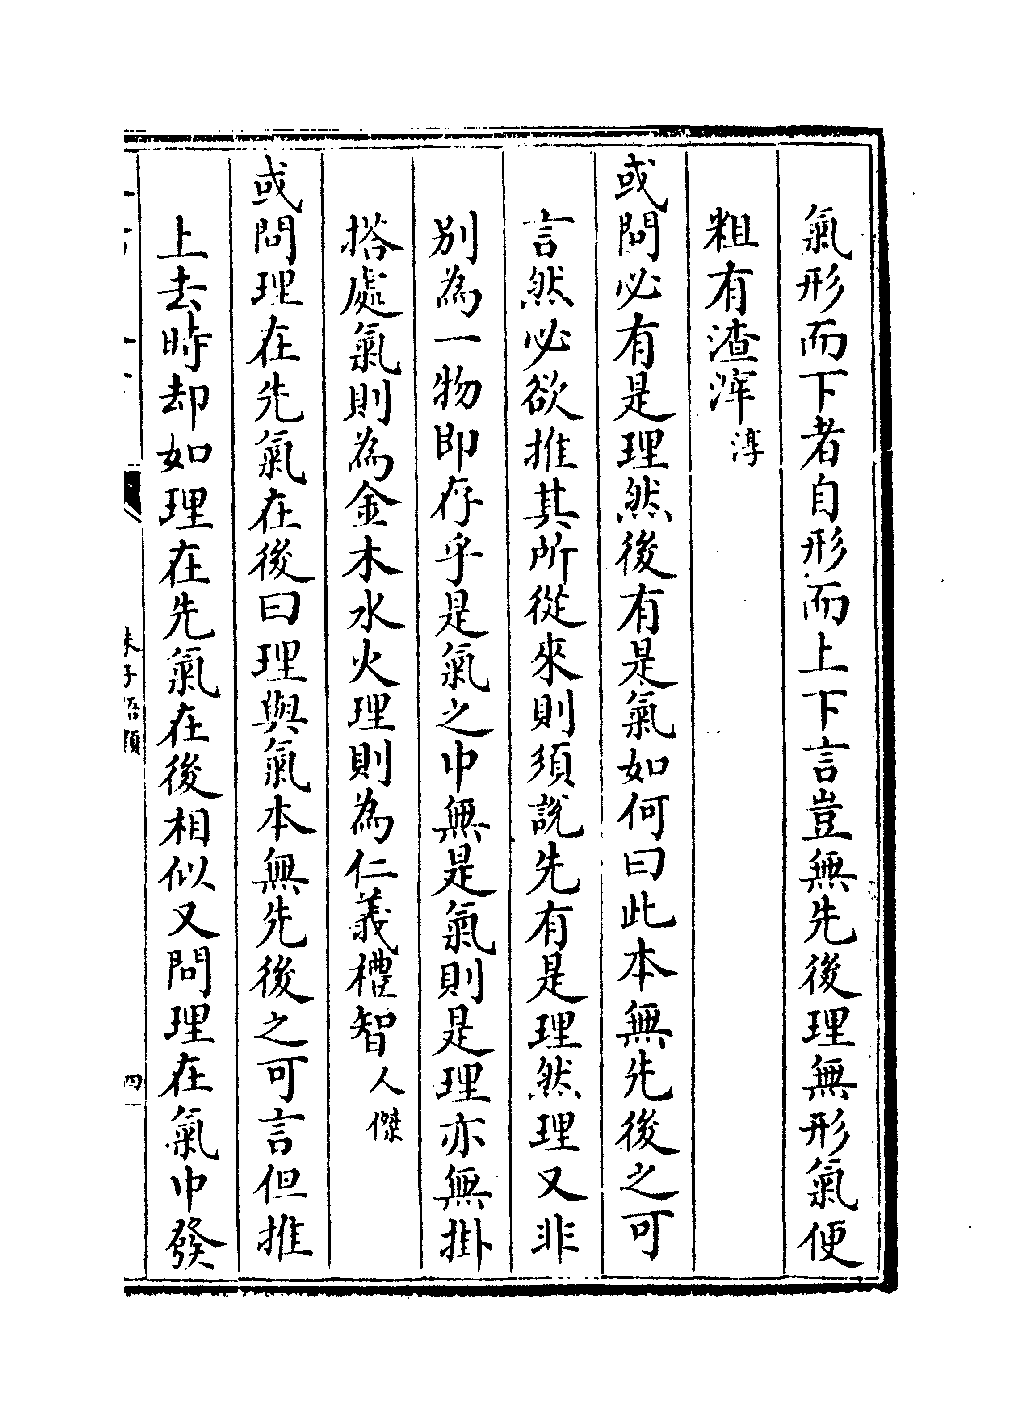 氣形而下者自形而上下言豈無先後理無形氣便
粗有渣滓淳
或問必有是理然後有是氣如何曰此本無先後之可
言然必欲推其所從來則須說先有是理然理又非
别為一物即存乎是氣之中無是氣則是理亦無掛
搭處氣則為金木水火理則為仁義禮智人傑
或問理在先氣在後曰理與氣本無先後之可言但推
上去時却如理在先氣在後相似又問理在氣中發
朱子語類
四